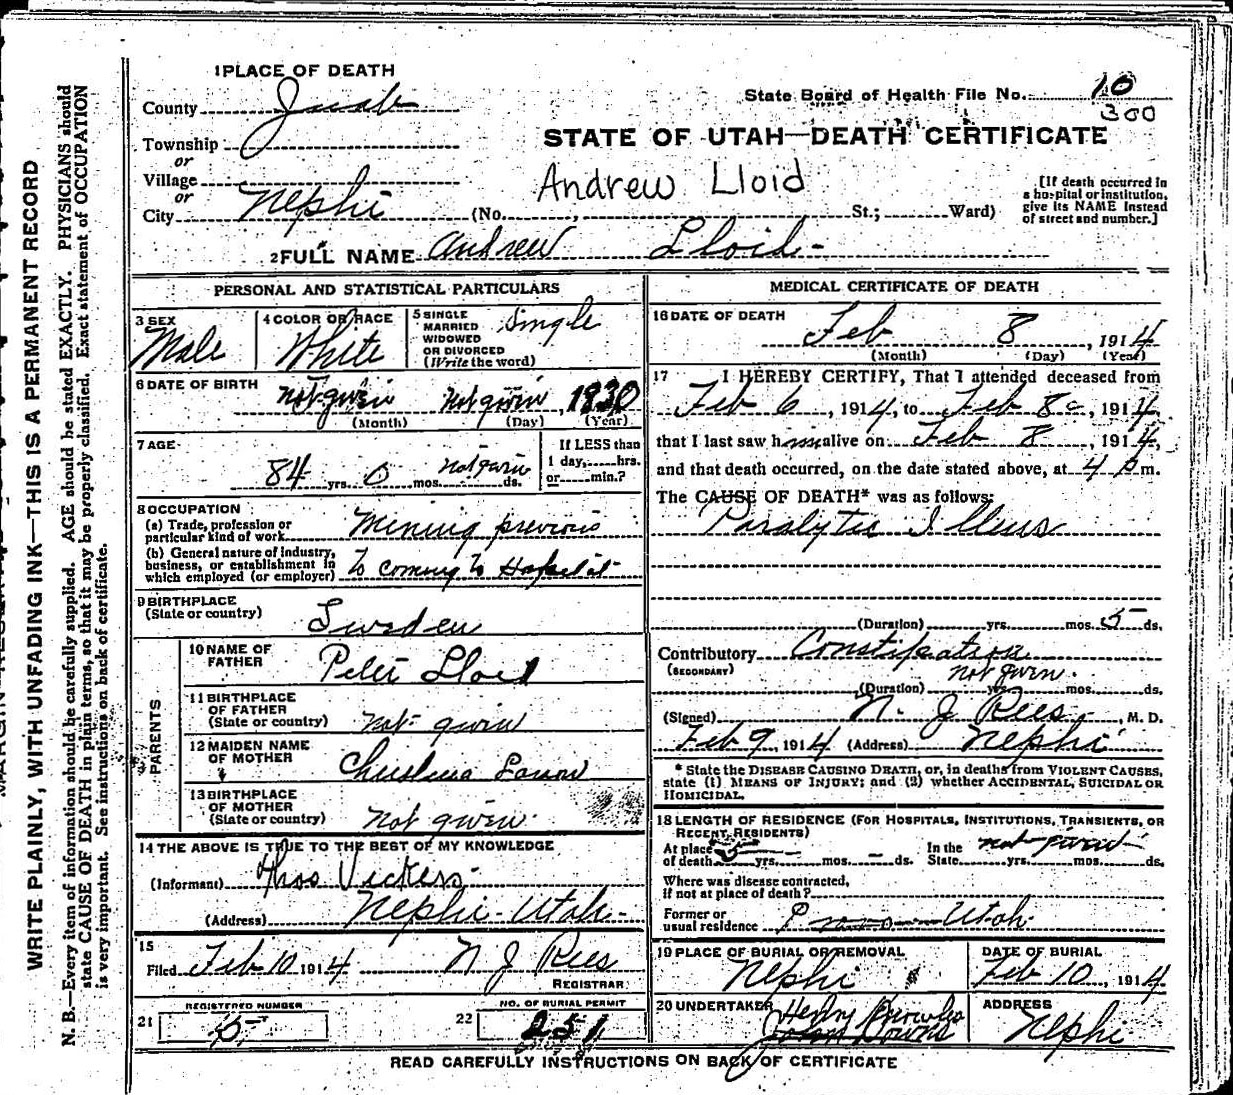 1 PLACE OF DEATH
County Juab
State Board of Health File No. 10
300
Township
or
Village
or
City Nephi (No. , St.; Ward)
STATE OF UTAH—DEATH CERTIFICATE
Andrew Lloid
[If death occurred in
a hospital or institution,
give its NAME instead
of street and number.]
2 FULL NAME Andrew Lloid
PERSONAL AND STATISTICAL PARTICULARS
3 SEX
Male
4 COLOR OR RACE
White
5 SINGLE
MARRIED
WIDOWED
OR DIVORCED
(Write the word)
Single
6 DATE OF BIRTH
not given not given, 1830
(Month) (Day) (Year)
7 AGE
84 yrs. 0 mos. not given ds.
If LESS than
1 day, hrs.
or min.?
8 OCCUPATION
(a) Trade, profession or
particular kind of work Mining previous
(b) General nature of industry,
business, or establishment in
which employed (or employer) to coming to Hospital
9 BIRTHPLACE
(State or country)
Sweden
PARENTS
10 NAME OF
FATHER
Peter Lloid
11 BIRTHPLACE
OF FATHER
(State or country)
not given
12 MAIDEN NAME
OF MOTHER
13 BIRTHPLACE
OF MOTHER
(State or country)
not given
14 THE ABOVE IS TRUE TO THE BEST OF MY KNOWLEDGE
(Informant) Thos Vickers
(Address) Nephi Utah
15
Filed Feb 10 1914 N J Rees
REGISTRAR
REGISTERED NUMBER
21 5
NO. OF BURIAL PERMIT
22 251
MEDICAL CERTIFICATE OF DEATH
16 DATE OF DEATH
Feb 8, 1914
(Month) (Day) (Year)
17 I HEREBY CERTIFY, That I attended deceased from
Feb 6, 1914, to Feb 8, 1914,
that I last saw him alive on Feb 8, 1914,
and that death occurred, on the date stated above, at 4 p m.
The CAUSE OF DEATH* was as follows:
Paralytic Illeus
(Duration) yrs. mos. 5 ds.
Contributory Constipation
(SECONDARY)
not given
(Duration) yrs. mos. ds.
(Signed) N. J Rees, M. D.
Feb 9, 1914 (Address) Nephi
* State the DISEASE CAUSING DEATH, or, in deaths from VIOLENT CAUSES,
state (1) MEANS OF INJURY; and (2) whether ACCIDENTAL, SUICIDAL OR
HOMICIDAL.
18 LENGTH OF RESIDENCE (FOR HOSPITALS, INSTITUTIONS, TRANSIENTS, OR
RECENT RESIDENTS)
At place
of death 5 yrs. mos. ds. In the
State yrs. mos. ds. not given
Where was disease contracted,
if not at place of death?
Former or
usual residence Utah
19 PLACE OF BURIAL OR REMOVAL
Nephi
DATE OF BURIAL
Feb 10, 1914
20 UNDERTAKER
Henry
ADDRESS
Nephi
READ CAREFULLY INSTRUCTIONS ON BACK OF CERTIFICATE
WRITE PLAINLY, WITH UNFADING INK—THIS IS A PERMANENT RECORD
N. B.—Every item of information should be carefully supplied. AGE should be stated EXACTLY. PHYSICIANS should
state CAUSE OF DEATH in plain terms, so that it may be properly classified. Exact statement of OCCUPATION
is very important. See instructions on back of certificate.